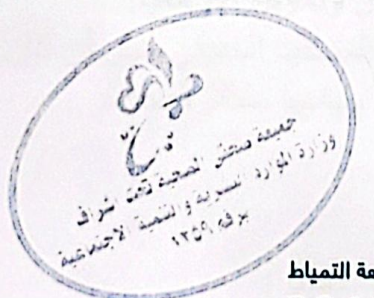 جمعية صحتي الصحية تحت اشراف
وزارة الموارد البشرية والتنمية الاجتماعية
برقم ١٣٥٩
التمياط